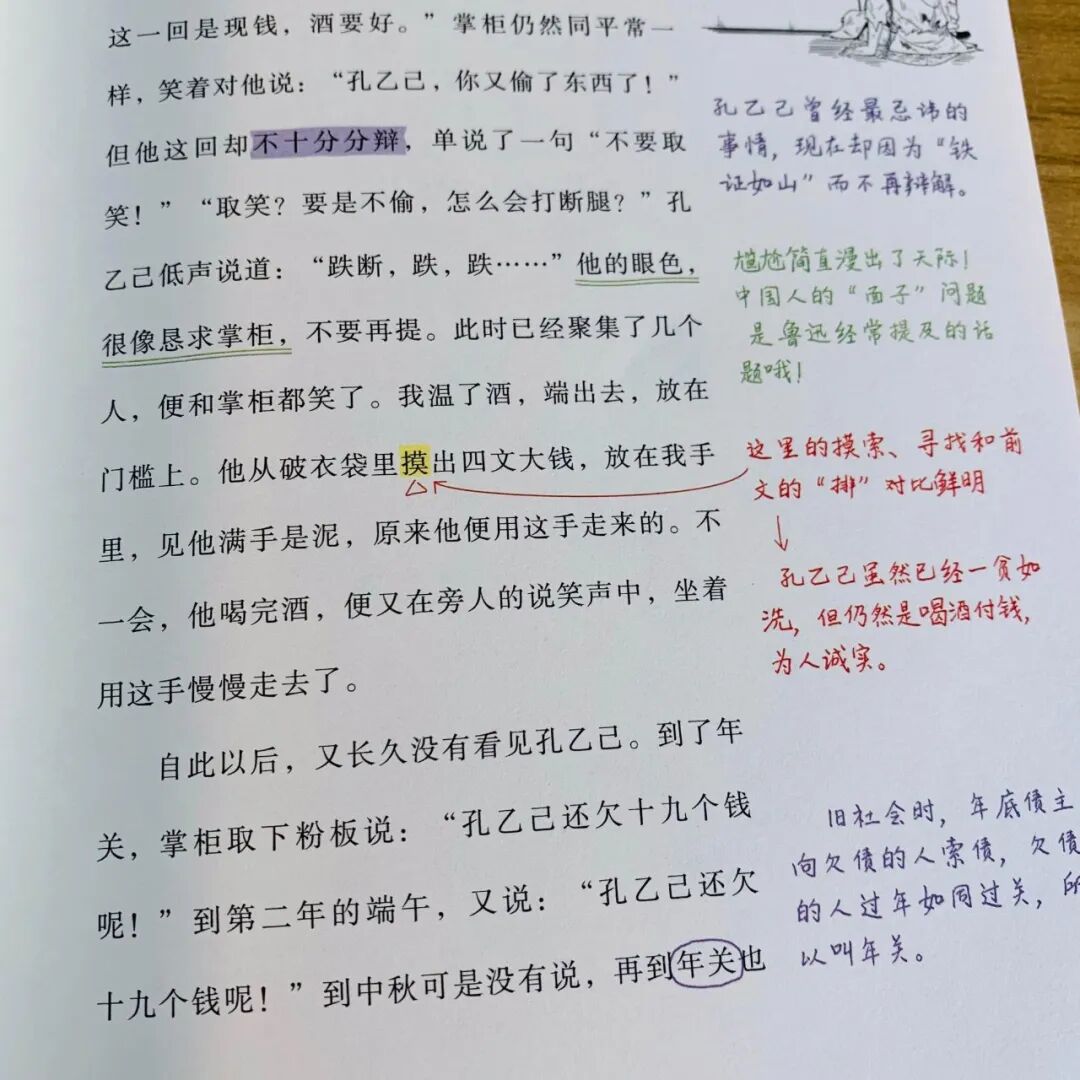 这一回是现钱，酒要好。”掌柜仍然同平常一
样，笑着对他说：“孔乙己，你又偷了东西了！”
但他这回却不十分分辩，单说了一句“不要取
笑！”“取笑？要是不偷，怎么会打断腿？”孔
乙己低声说道：“跌断，跌，跌……”他的眼色，
很像恳求掌柜，不要再提。此时已经聚集了几个
人，便和掌柜都笑了。我温了酒，端出去，放在
门槛上。他从破衣袋里摸出四文大钱，放在我手
里，见他满手是泥，原来他便用这手走来的。不
一会，他喝完酒，便又在旁人的说笑声中，坐着
用这手慢慢走去了。
自此以后，又长久没有看见孔乙己。到了年
关，掌柜取下粉板说：“孔乙己还欠十九个钱
呢！”到第二年的端午，又说：“孔乙己还欠
十九个钱呢！”到中秋可是没有说，再到年关也
孔乙己曾经最忌讳的
事情，现在却因为“铁
证如山”而不再辩解。
尴尬简直漫出了天际！
中国人的“面子”问题
是鲁迅经常提及的话
题哦！
这里的摸索、寻找和前
文的“排”对比鲜明
孔乙己虽然已经一贫如
洗，但仍然是喝酒付钱，
为人诚实。
旧社会时，年底债主
向欠债的人索债，欠债
的人过年如同过关，所
以叫年关。